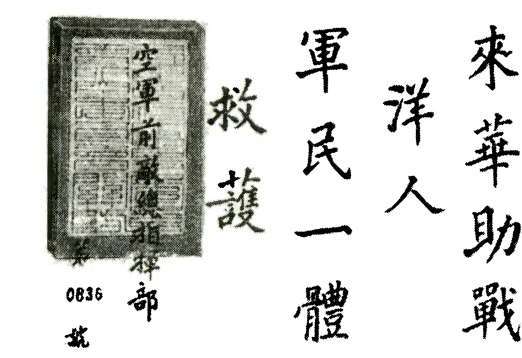 來華助戰
洋人
軍民一體
救護
空軍前敵總指揮部
第 0836 號